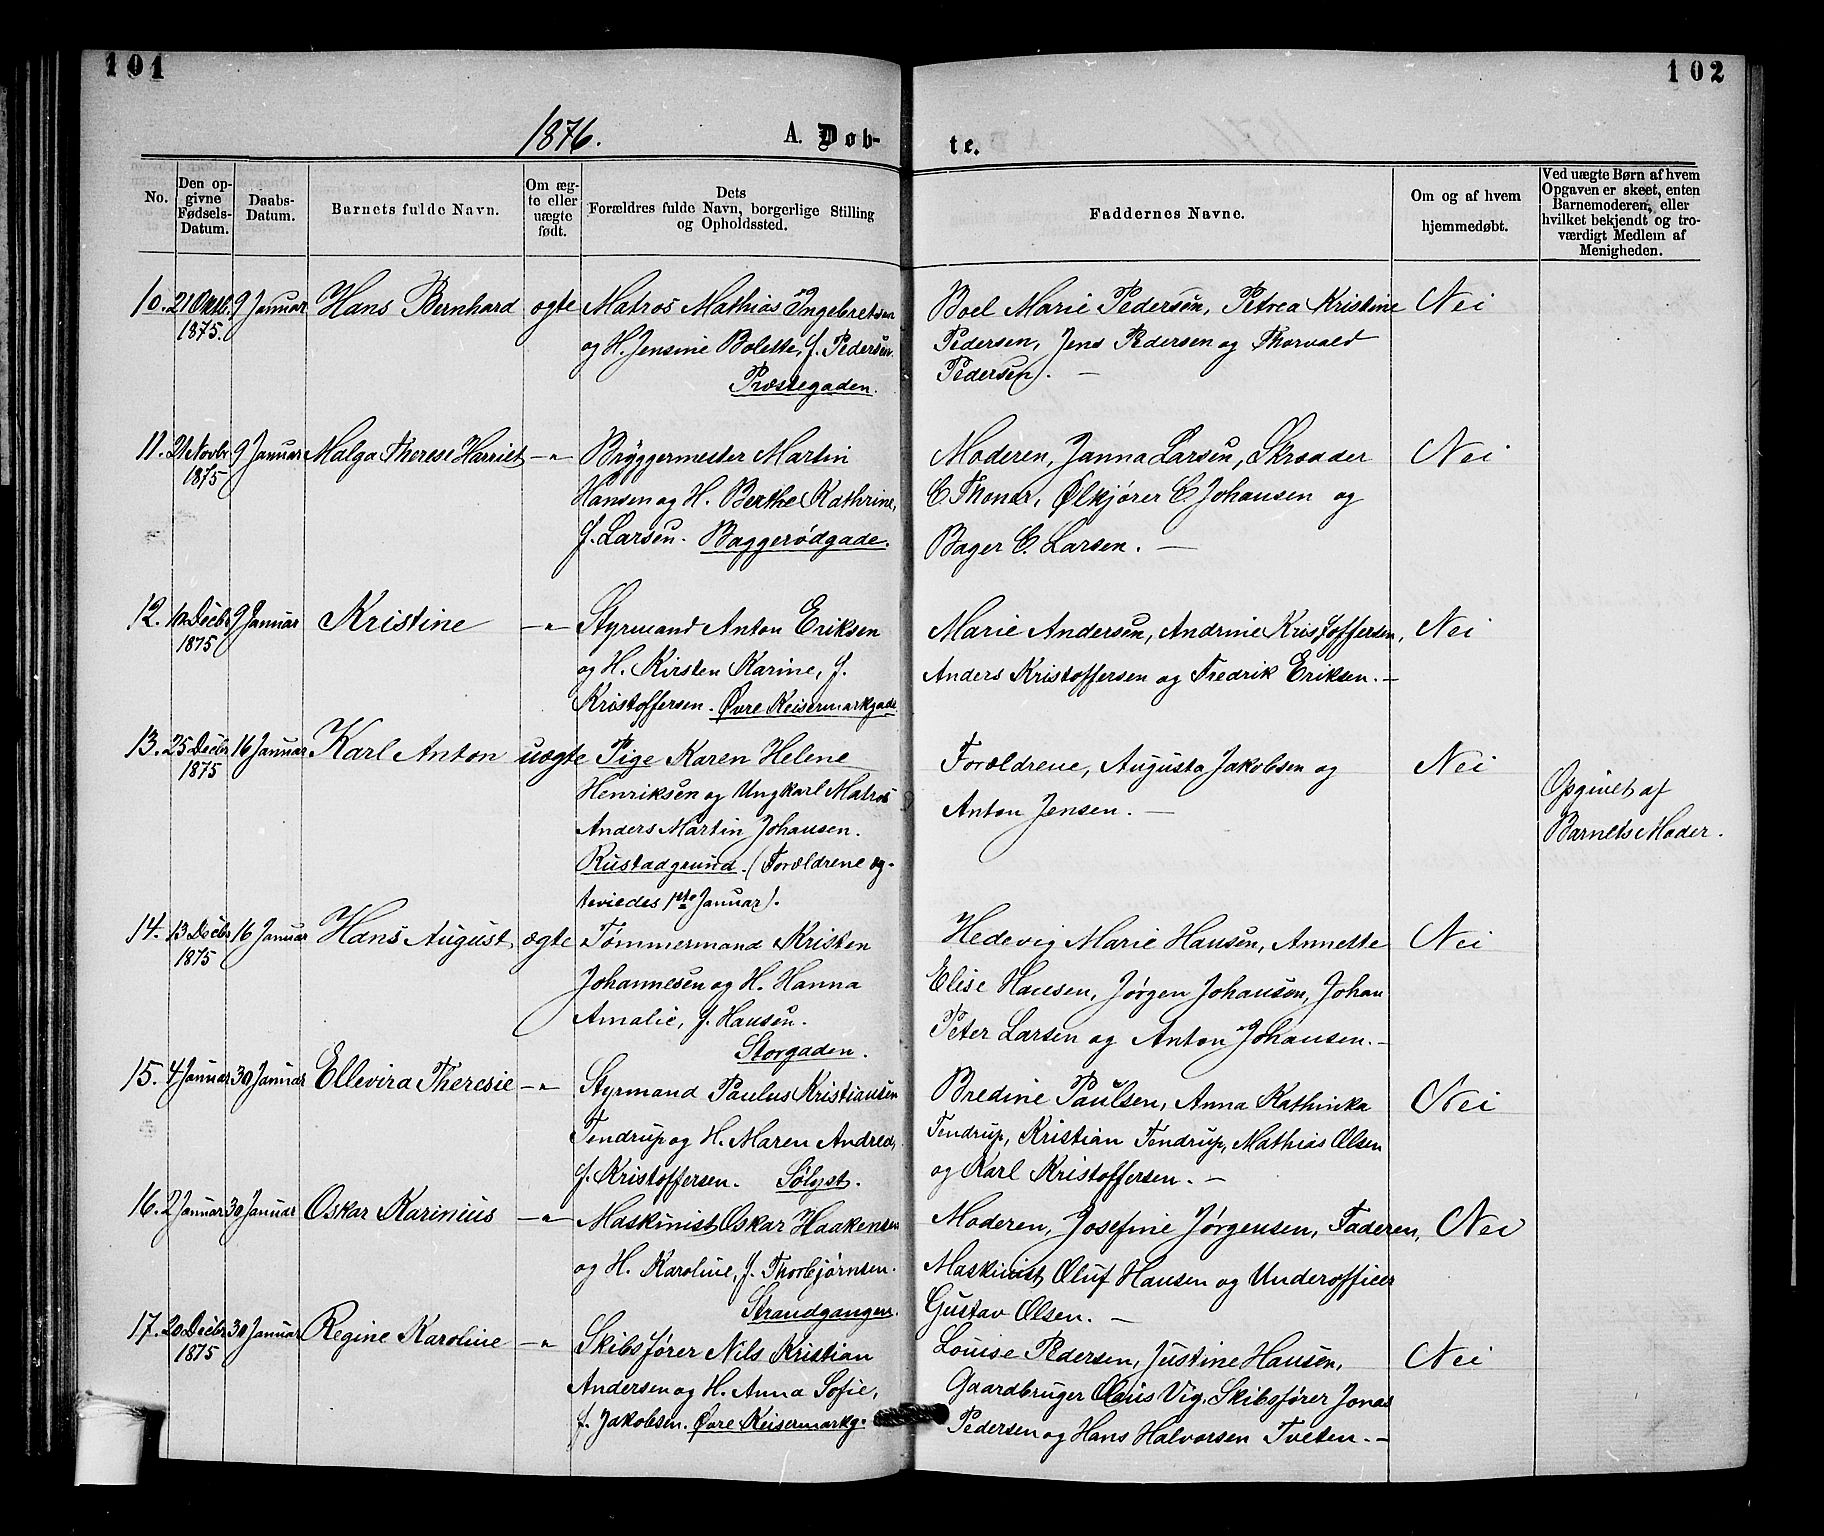 101
102
1876.
A. Døb-
te.
No.
Den op-
givne
Fødsels-
Datum.
Daabs-
Datum.
Barnets fulde Navn.
Om æg-
te eller
uægte
født.
Dets
Forældres fulde Navn, borgerlige Stilling
og Opholdssted.
Faddernes Navne.
Om og af hvem
hjemmedøbt.
Ved uægte Børn af hvem
Opgaven er skeet, enten
Barnemoderen, eller
hvilket bekjendt og tro-
værdigt Medlem af
Menigheden.
10. 21 Oktb. 9 Januar Hans Bernhard ægte Matros Mathias Ingebretsen
1875.
og H. Jensine Bolette, f. Pedersen.
Præstegaden.
Boel Marie Pedersen, Petrea Kristine Nei
Pedersen, Jens Pedersen og Thorvald
Pedersen. —
11. 21 Novbr 9 Januar Malga Therese Harriet —"— Bryggermester Martin
1875
Hansen og H. Berthe Kathrine,
f. Larsen. Baggerødgade.
Moderen, Janna Larsen, Skrædder Nei
C. Thoner, Ølkjører C. Johansen og
Bager C. Larsen. —
12. Decbr 9 Januar Kristine —"— Styrmand Anton Eriksen
1875
og H. Kirsten Karine, f.
Kristoffersen. Øvre Keisermarkgade
Marie Andersen, Andrine Kristoffersen, Nei
Anders Kristoffersen og Fredrik Eriksen. —
13. 25 Decbr 16 Januar Karl Anton uægte Pige Karen Helene
1875
Henriksen og Ungkarl Matros
Anders Martin Johansen.
Rustadgrund. (Forældrene æg-
teviedes 1ste Januar).
Forældrene, Augusta Jakobsen og Nei
Anton Jensen. —
Opgivet af
Barnets Moder.
14. 13 Decbr 16 Januar Hans August ægte Tømmermand Kristen
1875
Johannesen og H. Hanna
Amalie, f. Hansen.
Storgaden.
Hedevig Marie Hansen, Annette Nei
Elise Hansen, Jørgen Johansen, Johan
Peter Larsen og Anton Johansen. —
15. 4 Januar 30 Januar Ellevira Theresie —"— Styrmand Paulus Kristiansen
Tendrup og H. Maren Andrea,
f. Kristoffersen. Sølyst.
Bredine Paulsen, Anna Kathinka Nei
Tendrup, Kristian Tendrup, Mathias Olsen
og Karl Kristoffersen. —
16. 2 Januar 30 Januar Oskar Karinius —"— Maskinist Oskar Haakensen
og H. Karoline, f. Thorbjørnsen.
Strandgangen.
Moderen, Josefine Jørgensen, Faderen, Nei
Maskinist Oluf Hansen og Underofficer
Gustav Olsen. —
17. 20 Decbr 30 Januar Regine Karoline —"— Skibsfører Nils Kristian
1875
Andersen og H. Anna Sofie,
f. Jakobsen. Øvre Keisermarkg.
Louise Pedersen, Justine Hansen, Nei
Gaardbruger Olaus Vig, Skibsfører Jonas
Pedersen og Hans Halvorsen Tveten. —